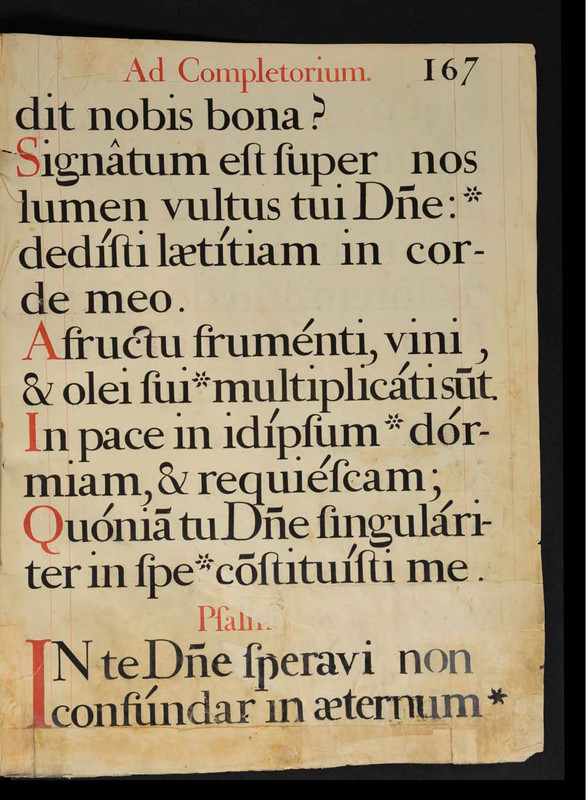 Ad Completorium. 167
dit nobis bona?
Signâtum eſt ſuper nos
lumen vultus tui Dñe: *
dedíſti lætítiam in cor-
de meo.
A fructu fruménti, vini,
& olei ſui * multiplicáti sūt.
In pace in idípſum * dór-
miam, & requiéſcam;
Quóniā tu Dñe ſingulári-
ter in ſpe * cōſtituíſti me.
IN te Dñe ſperavi non
confúndar in æternum *